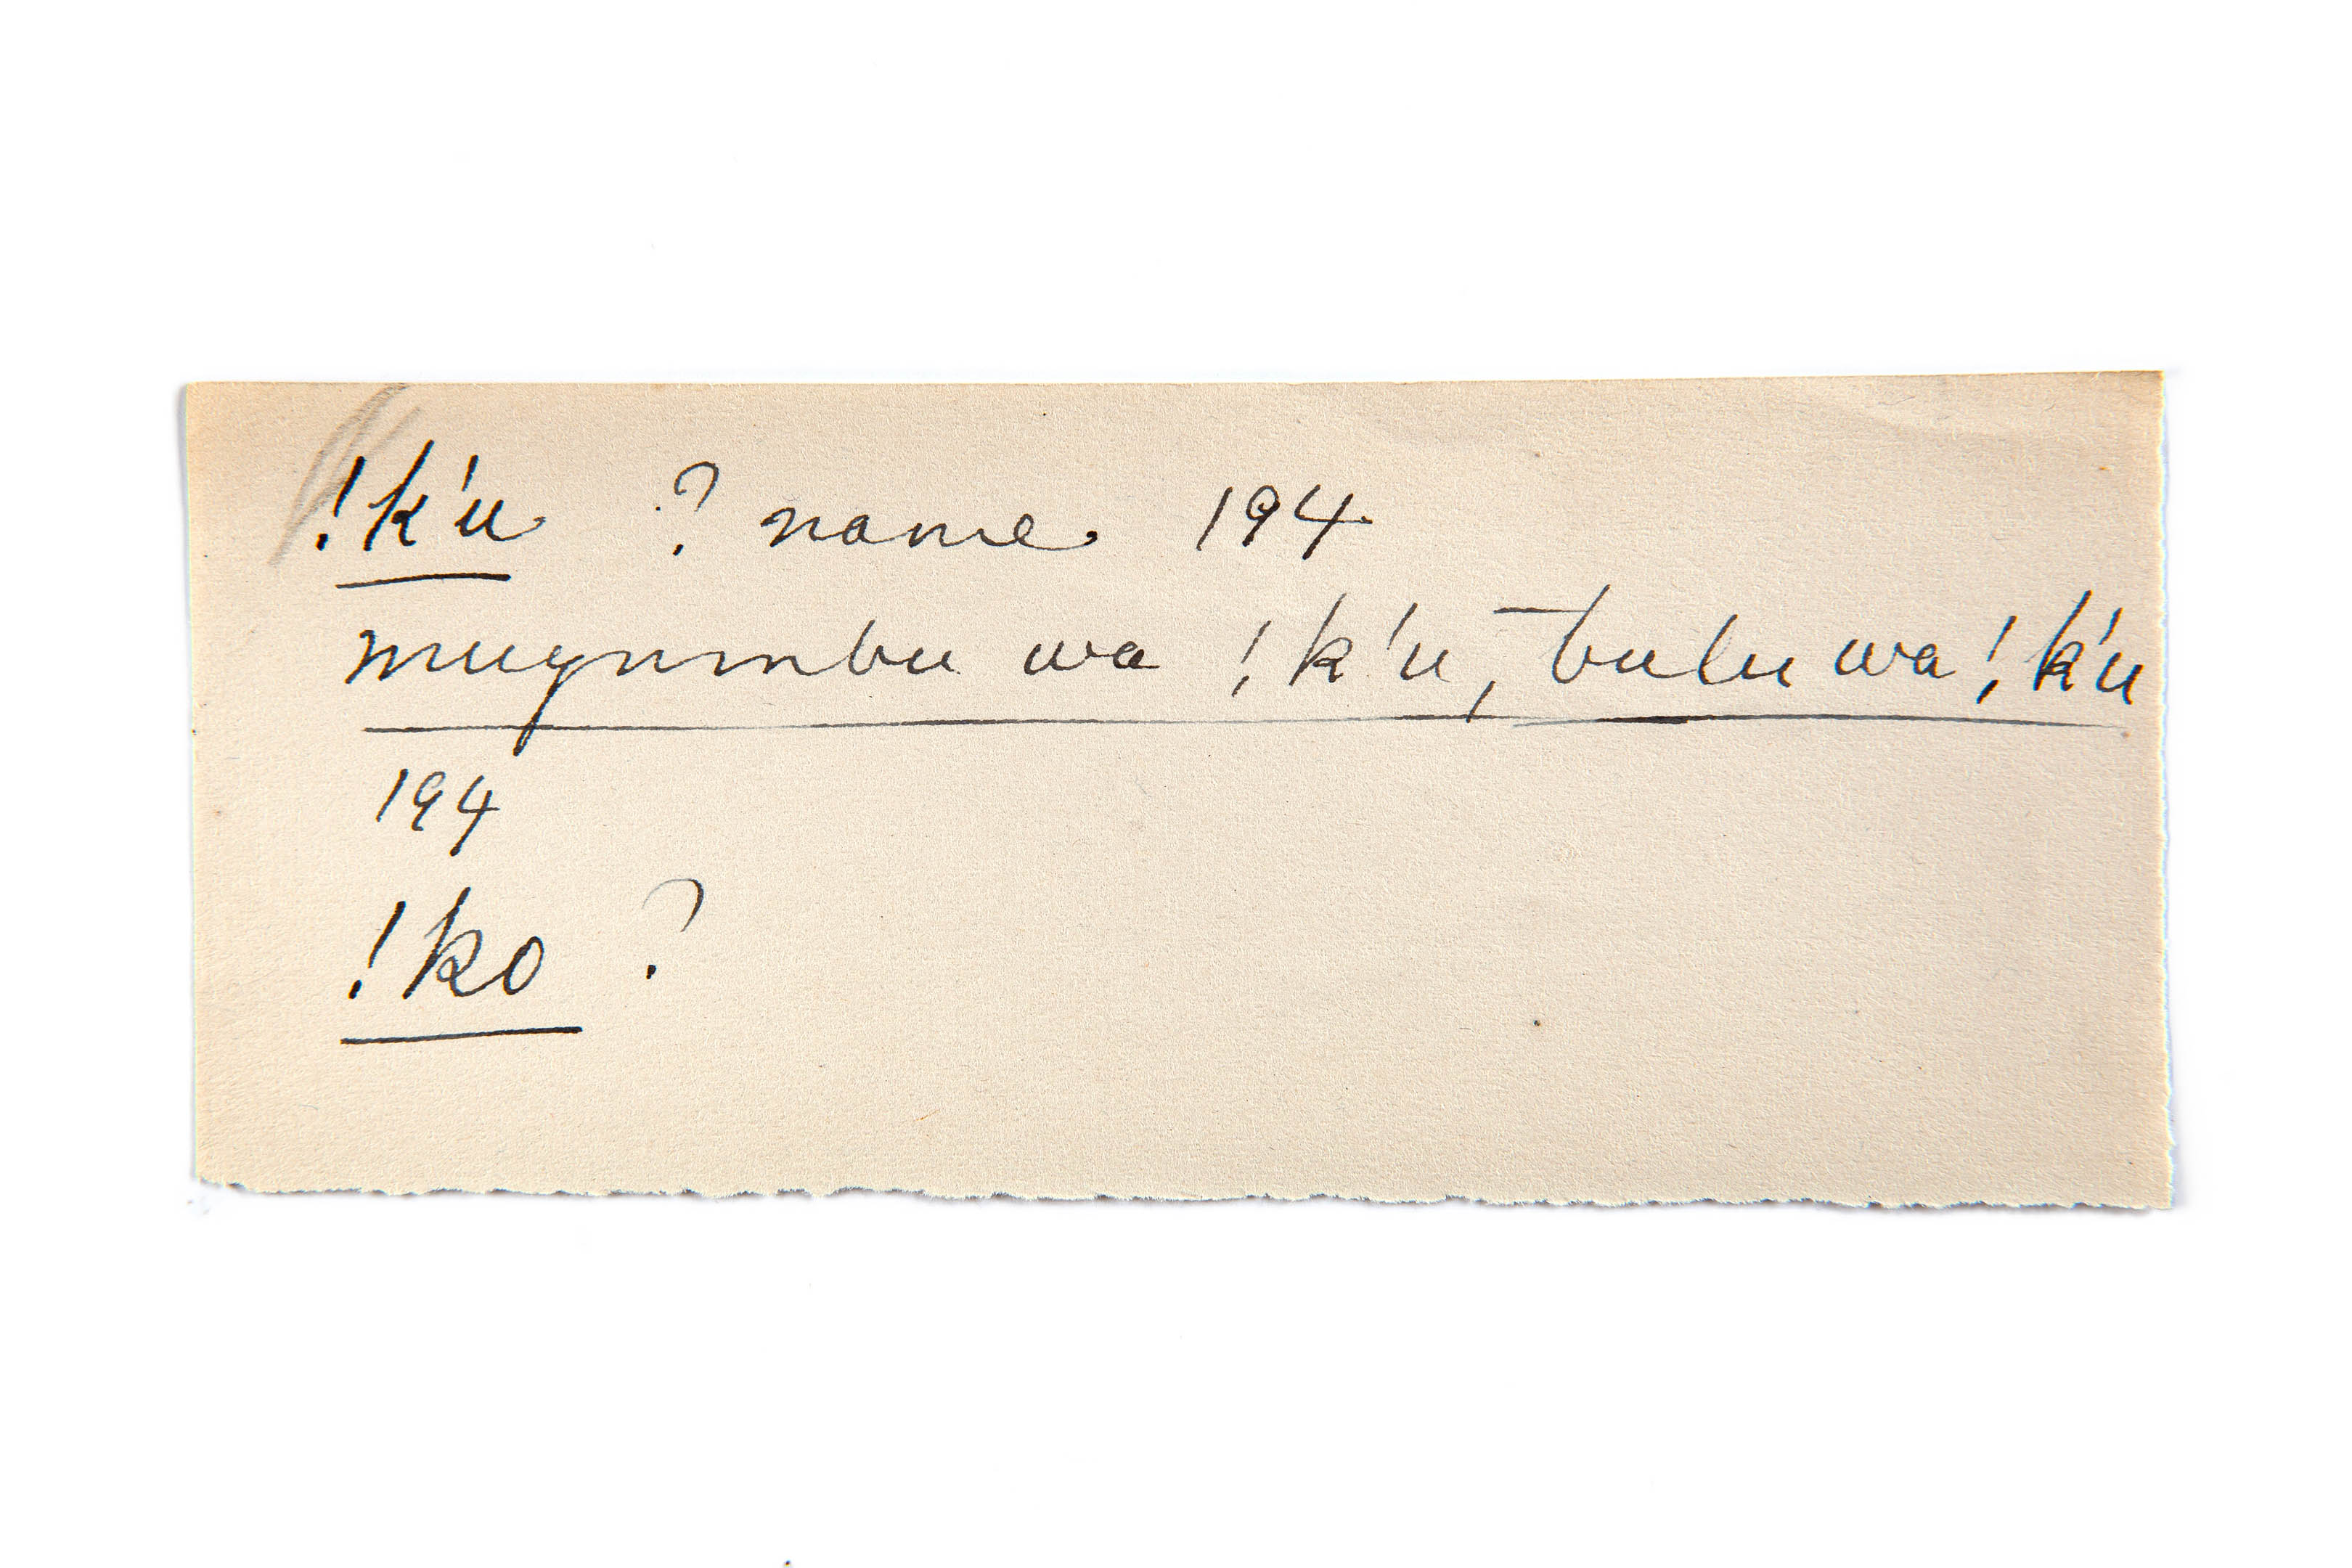 !k'u ? name 194
mugumbu wa !k'u, bulu wa !k'u
194
!ko ?